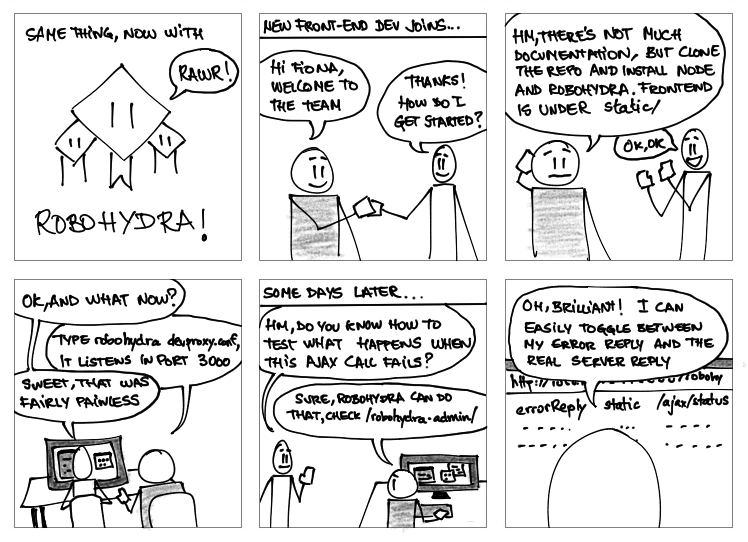 SAME THING, NOW WITH
RAWR!
ROBOHYDRA!
NEW FRONT-END DEV JOINS...
HI FIONA,
WELCOME TO
THE TEAM
THANKS!
HOW DO I
GET STARTED?
HM, THERE'S NOT MUCH
DOCUMENTATION, BUT CLONE
THE REPO AND INSTALL NODE
AND ROBOHYDRA. FRONTEND
IS UNDER static/
OK, OK
OK, AND WHAT NOW?
TYPE robohydra devproxy.conf,
IT LISTENS IN PORT 3000
SWEET, THAT WAS
FAIRLY PAINLESS
SOME DAYS LATER...
HM, DO YOU KNOW HOW TO
TEST WHAT HAPPENS WHEN
THIS AJAX CALL FAILS?
SURE, ROBOHYDRA CAN DO
THAT, CHECK /robohydra-admin/
OH, BRILLIANT! I CAN
EASILY TOGGLE BETWEEN
MY ERROR REPLY AND THE
REAL SERVER REPLY
errorReply static /ajax/status